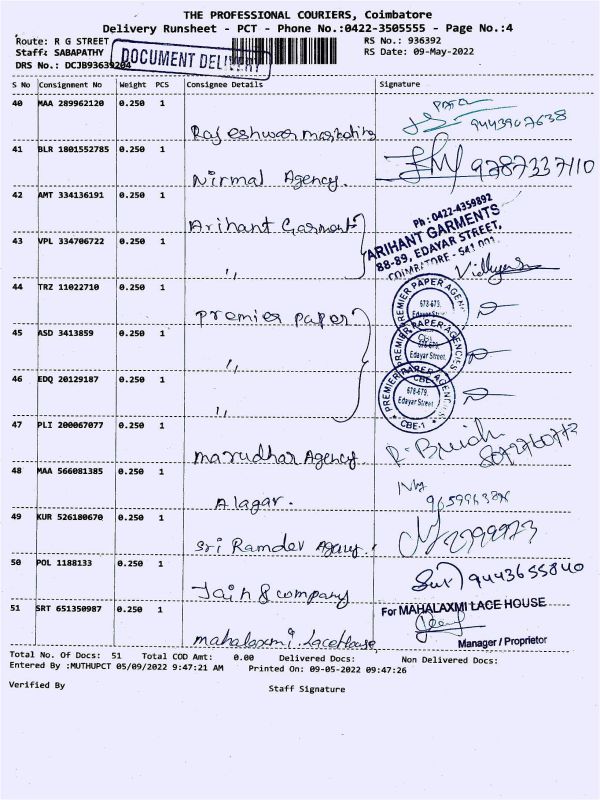 THE PROFESSIONAL COURIERS, Coimbatore
Delivery Runsheet - PCT - Phone No.:0422-3505555 - Page No.:4
Route: R G STREET RS No.: 936392
Staff: SABAPATHY RS Date: 09-May-2022
DRS No.: DCJB93639204
DOCUMENT DELIVERY
S No Consignment No Weight PCS Consignee Details Signature
40 MAA 289962120 0.250 1
Rajeshwar marketing 9443907638
41 BLR 1801552785 0.250 1
Nirmal Agency. 9787337110
42 AMT 334136191 0.250 1
Arihant Garment
Ph : 0422-4359892
ARIHANT GARMENTS
88-89, EDAYAR STREET,
COIMBATORE - 541 001.
43 VPL 334706722 0.250 1
"
44 TRZ 11022710 0.250 1
premier paper
PREMIER PAPER AGENCIES
678-679,
Edayar Street
45 ASD 3413859 0.250 1
"
PREMIER PAPER AGENCIES
678-679,
Edayar Street
CBE-1
46 EDQ 20129187 0.250 1
"
PREMIER PAPER AGENCIES
678-679,
Edayar Street
CBE-1
47 PLI 200067077 0.250 1
marudhar Agency
48 MAA 566081385 0.250 1
Alagar.
49 KUR 526180670 0.250 1
Sri Ramdev Agency
50 POL 1188133 0.250 1
Jain & company 9443655840
51 SRT 651350987 0.250 1
mahalaxmi LaceHouse
For MAHALAXMI LACE HOUSE
Manager / Proprietor
Total No. Of Docs: 51 Total COD Amt: 0.00 Delivered Docs: Non Delivered Docs:
Entered By :MUTHUPCT 05/09/2022 9:47:21 AM Printed On: 09-05-2022 09:47:26
Verified By Staff Signature